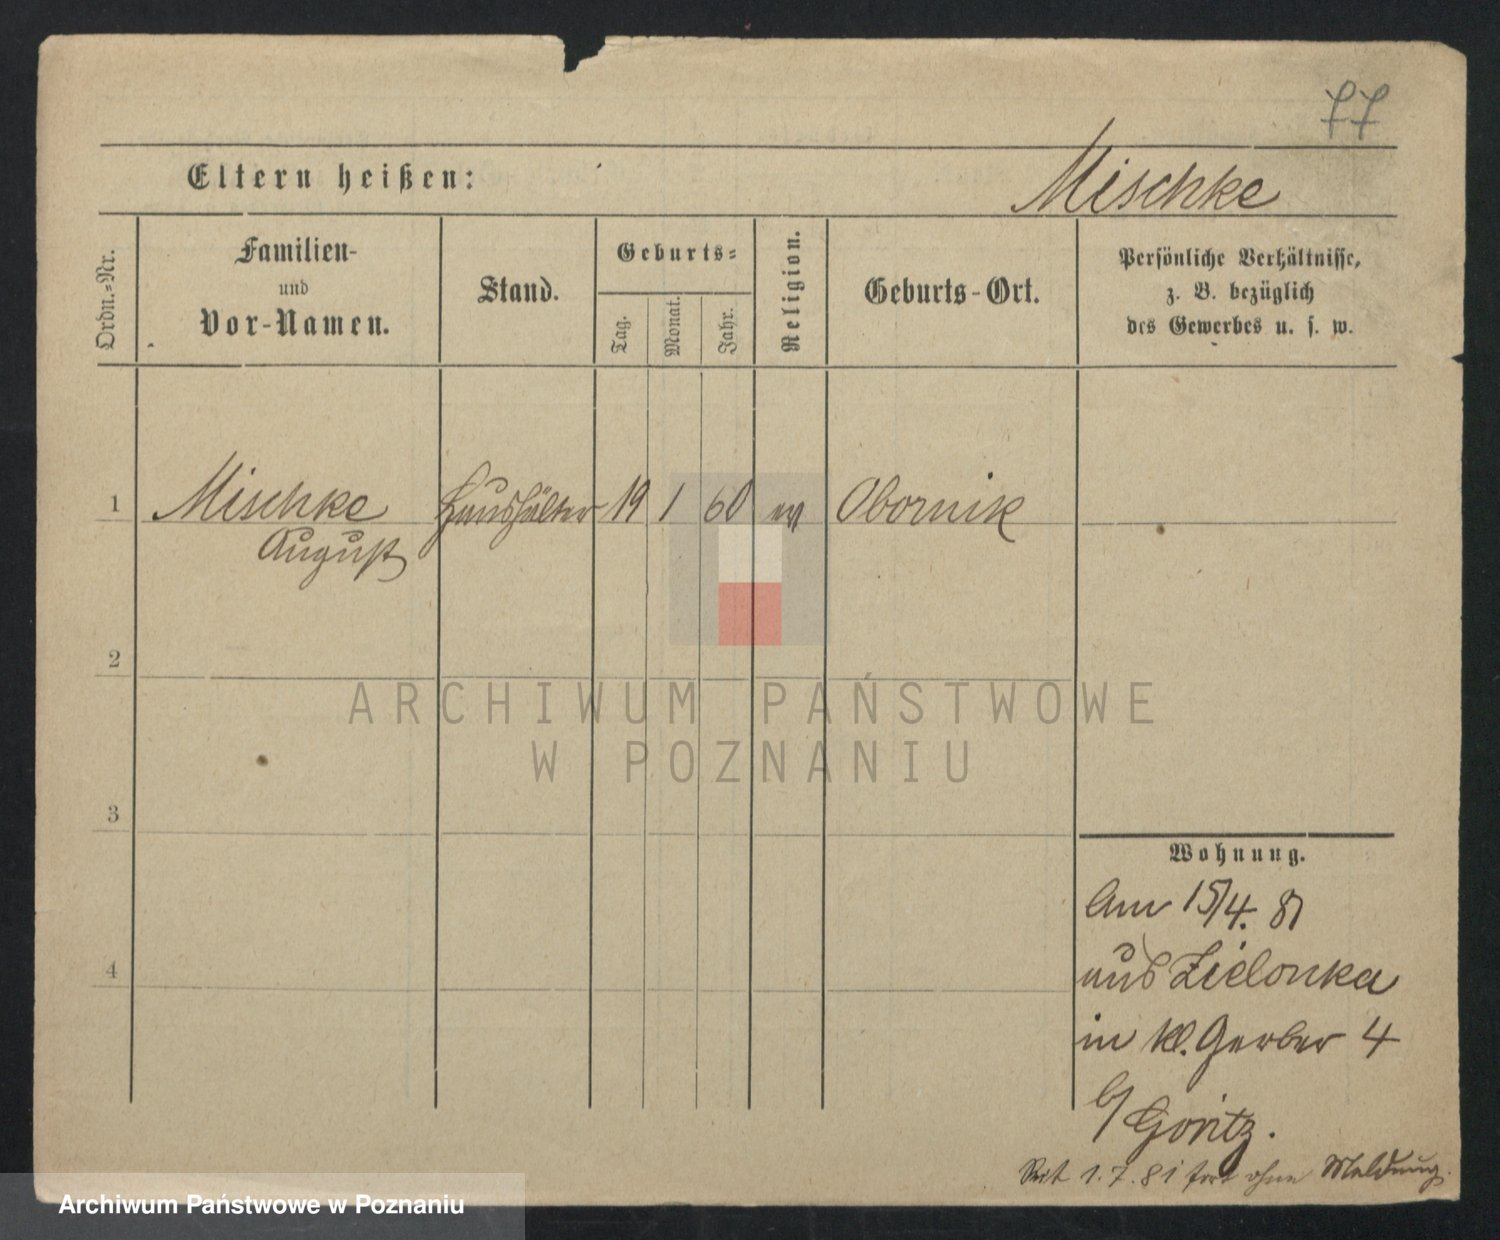 77
Eltern heißen:
Mischke
Ordn.-Nr.
Familien-
und
Vor-Namen.
Stand.
Geburts-
Tag.
Monat.
Jahr.
Religion.
Geburts-Ort.
Persönliche Verhältnisse,
z. B. bezüglich
des Gewerbes u. s. w.
1 Mischke Haushälter 19 1 60 ev Obornik
August
2
3
4
Wohnung.
Am 15/4. 81
aus Zielonka
in kl. Gerber 4
b/ Goritz.
Seit 1.7.81 fort ohne Meldung.
ARCHIWUM PAŃSTWOWE
W POZNANIU
Archiwum Państwowe w Poznaniu